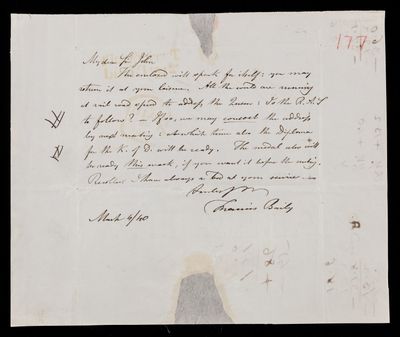 177
My dear Sir John
The enclosed will speak for itself: you may
return it at your leisure. All the world are running
at rail road speed to address the Queen: Is the R.A.S
to follow? — If so, we may concoct the address
by next meeting: at which time also the diploma
for the K. of D. will be ready. The medal also will
be ready this week, if you want it before the meeting.
Recollect I have always a bed at your service —
Francis Baily
March 4/40